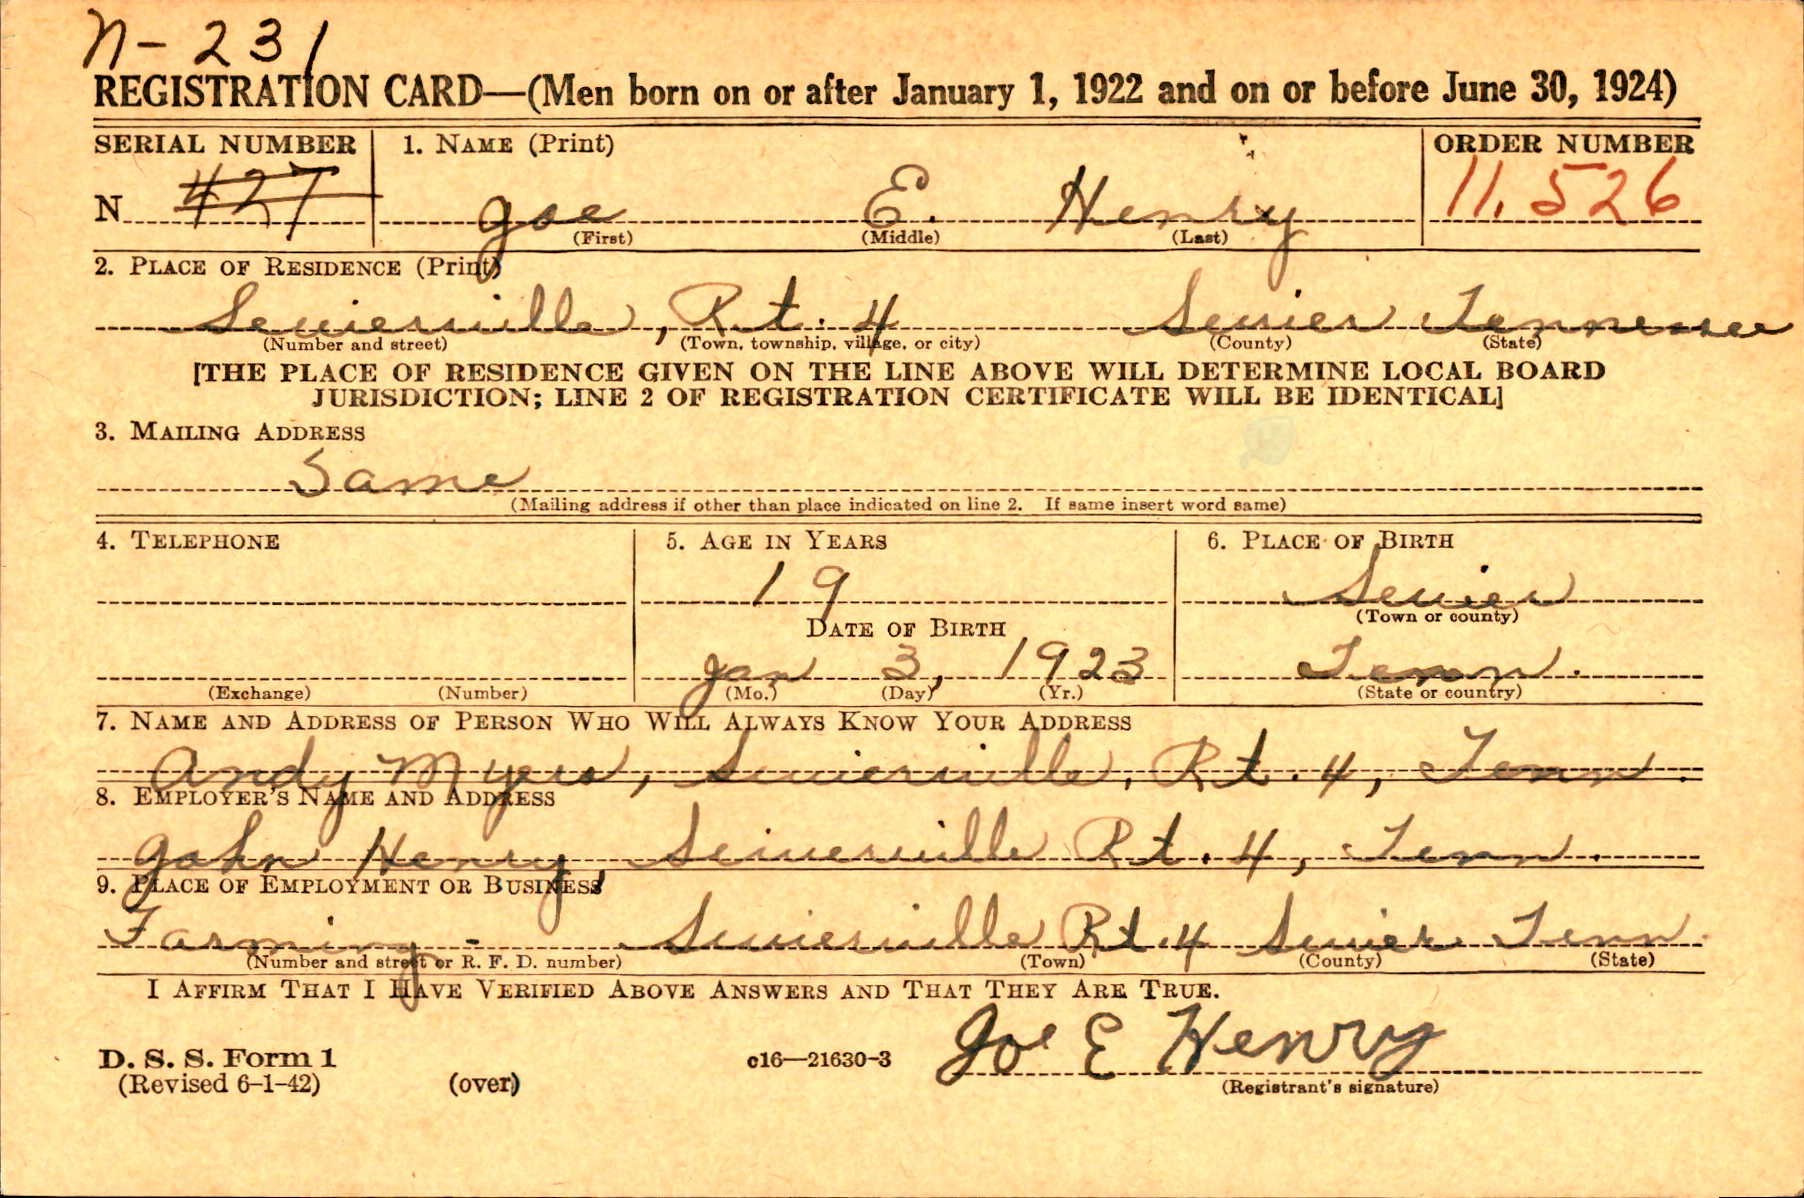 N-231
REGISTRATION CARD—(Men born on or after January 1, 1922 and on or before June 30, 1924)
SERIAL NUMBER 1. NAME (Print) ORDER NUMBER
N 427 Joe E. Henry 11,526
(First) (Middle) (Last)
2. PLACE OF RESIDENCE (Print)
Sevierville, Rt. 4 Sevier Tennessee
(Number and street) (Town, township, village, or city) (County) (State)
[THE PLACE OF RESIDENCE GIVEN ON THE LINE ABOVE WILL DETERMINE LOCAL BOARD
JURISDICTION; LINE 2 OF REGISTRATION CERTIFICATE WILL BE IDENTICAL]
3. MAILING ADDRESS
Same
(Mailing address if other than place indicated on line 2. If same insert word same)
4. TELEPHONE 5. AGE IN YEARS 6. PLACE OF BIRTH
19 Sevier
(Town or county)
DATE OF BIRTH
Jan 3, 1923 Tenn.
(Exchange) (Number) (Mo.) (Day) (Yr.) (State or country)
7. NAME AND ADDRESS OF PERSON WHO WILL ALWAYS KNOW YOUR ADDRESS
Andy Myers, Sevierville, Rt. 4, Tenn.
8. EMPLOYER'S NAME AND ADDRESS
John Henry, Sevierville Rt. 4, Tenn.
9. PLACE OF EMPLOYMENT OR BUSINESS
Farming - Sevierville Rt. 4 Sevier Tenn.
(Number and street or R. F. D. number) (Town) (County) (State)
I AFFIRM THAT I HAVE VERIFIED ABOVE ANSWERS AND THAT THEY ARE TRUE.
Joe E Henry
D. S. S. Form 1 c16—21630-3
(Revised 6-1-42) (over) (Registrant's signature)